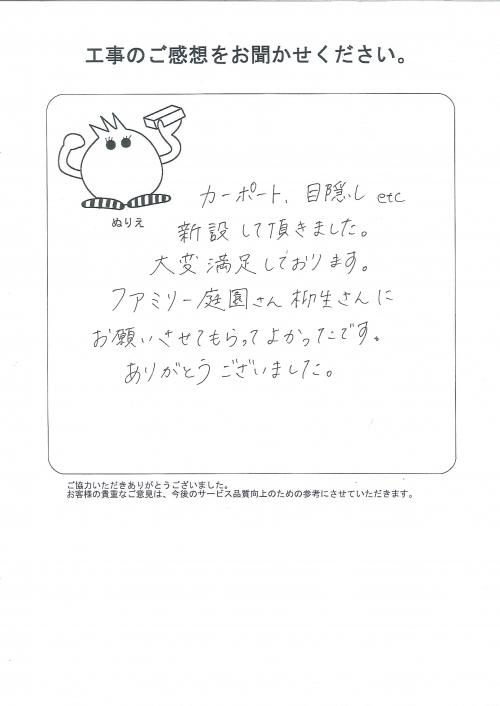 工事のご感想をお聞かせください。
ぬりえ
カーポート、目隠し etc
新設して頂きました。
大変満足しております。
ファミリー庭園さん柳生さんに
お願いさせてもらってよかったです。
ありがとうございました。
ご協力いただきありがとうございました。
お客様の貴重なご意見は、今後のサービス品質向上のための参考にさせていただきます。